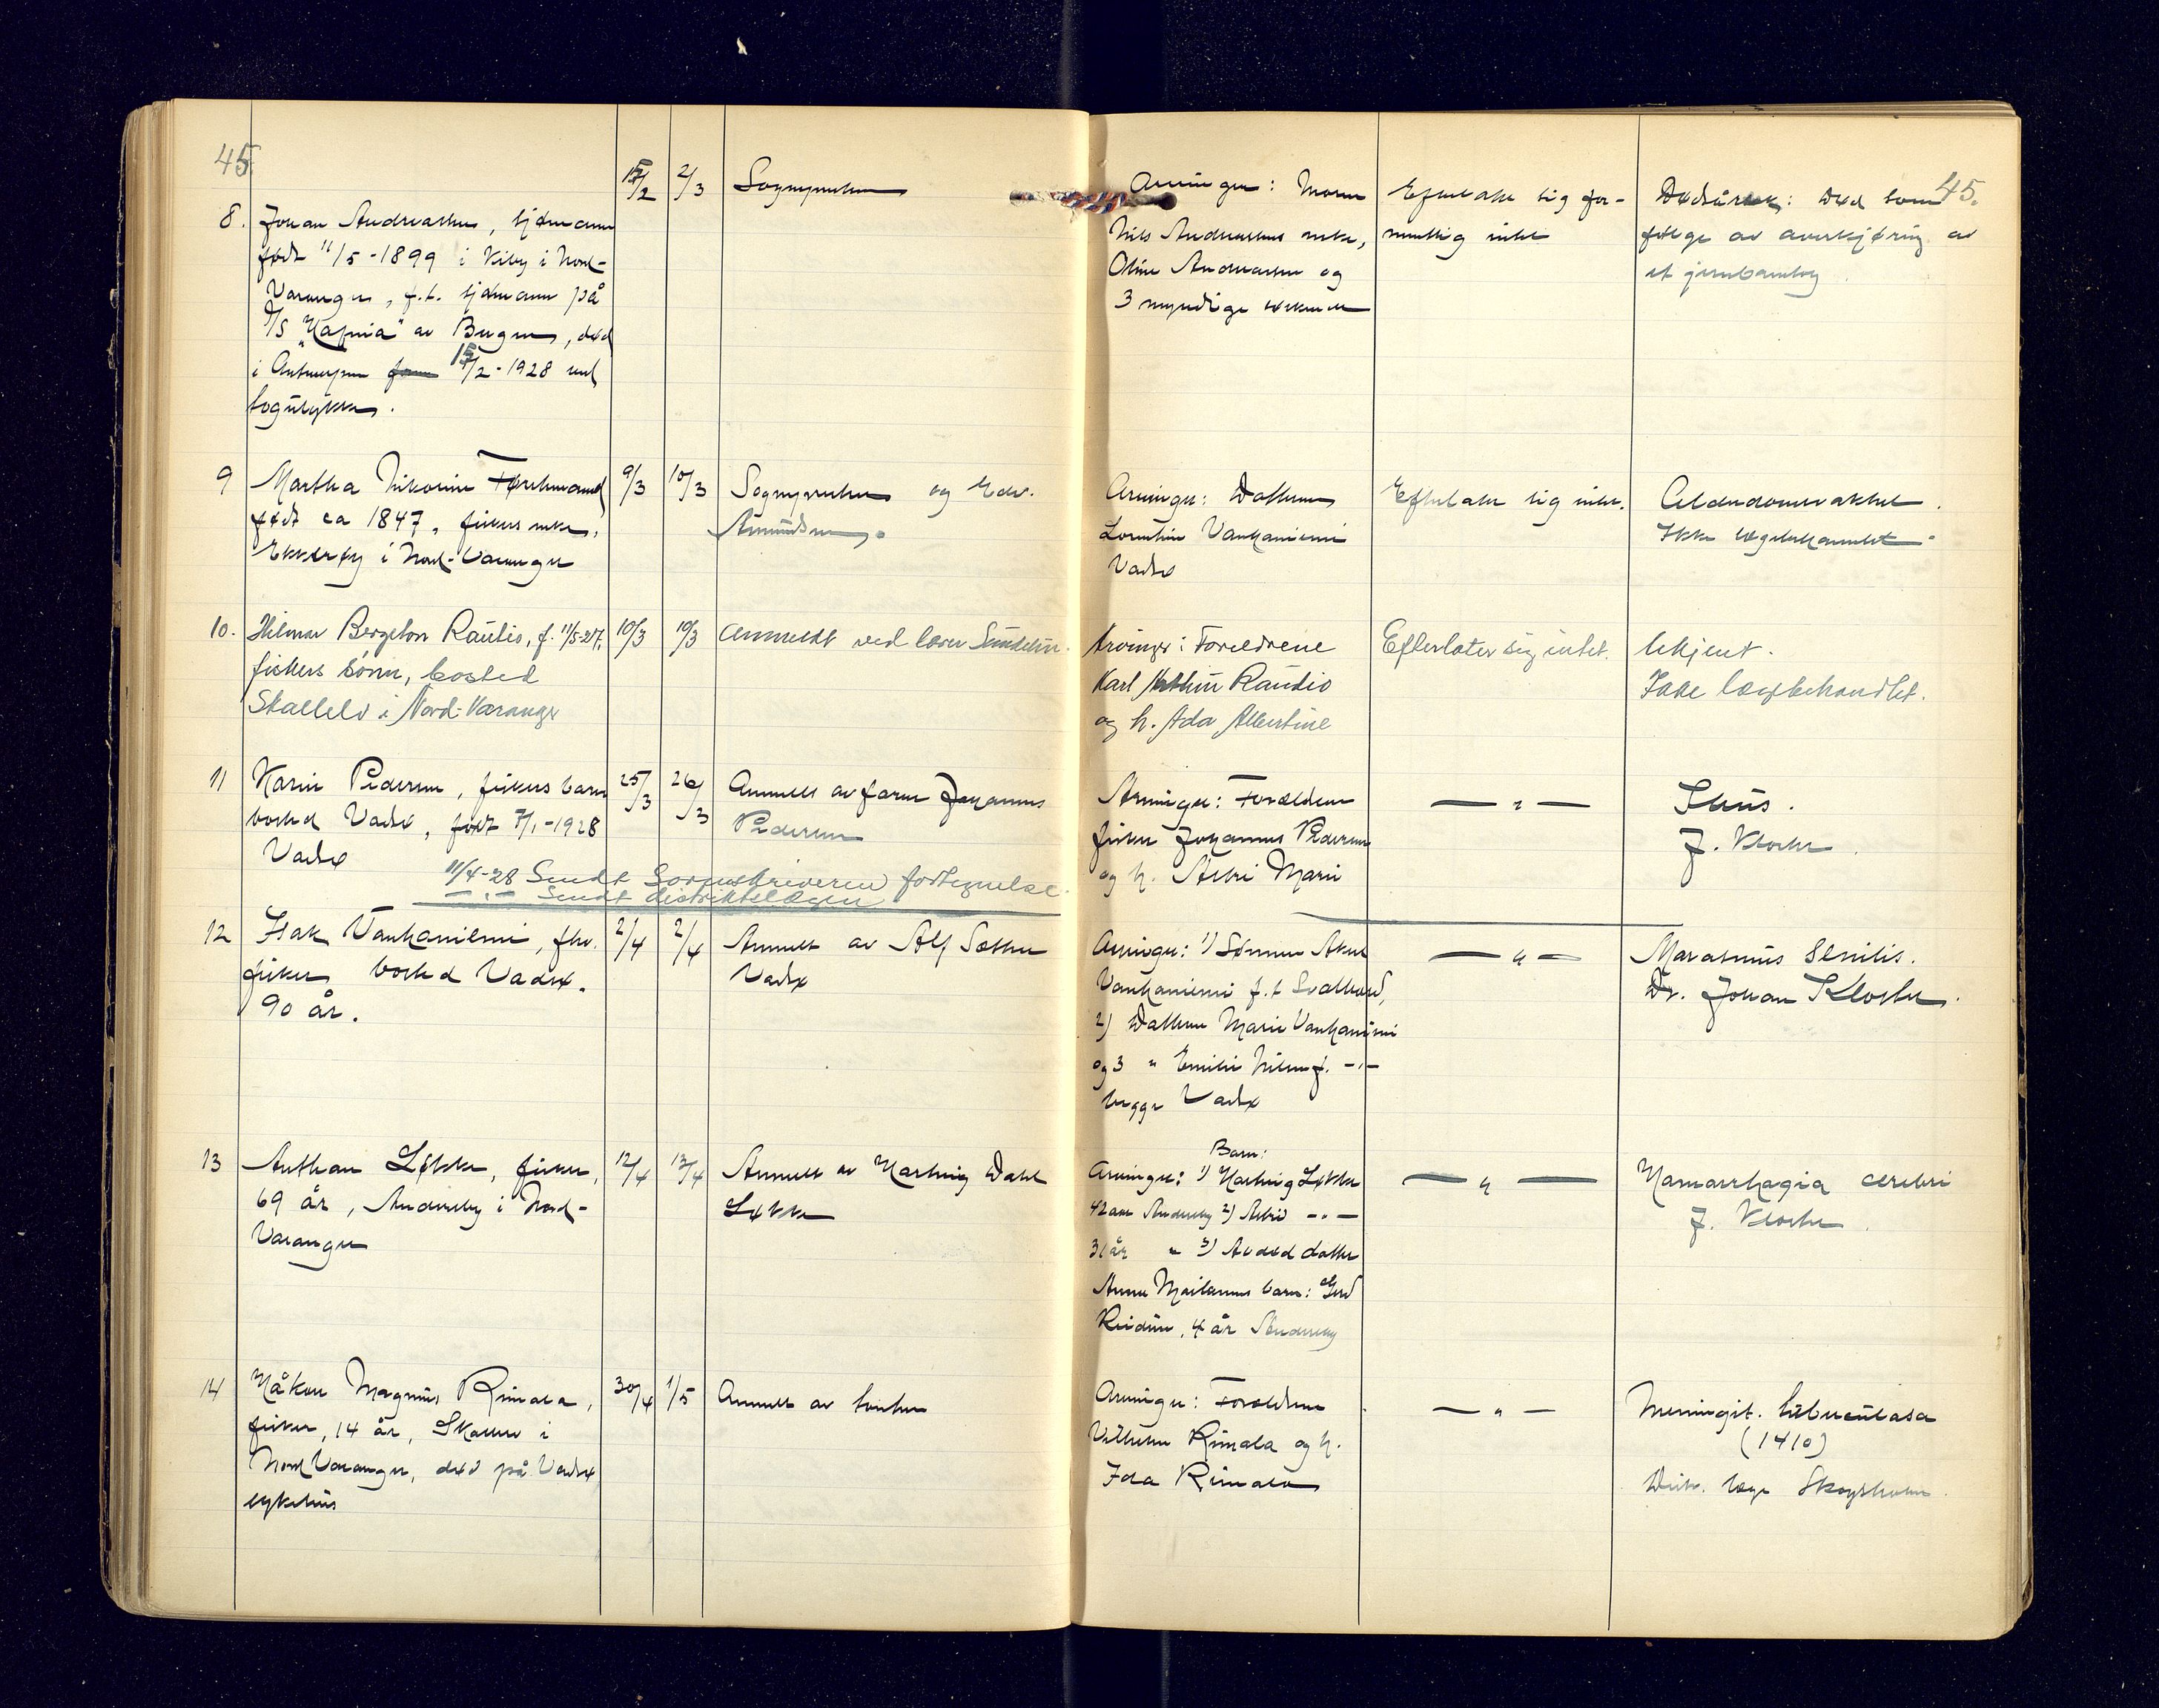 45.
15/2 2/3 Sognepresten
8. Johan Andreassen, sjømann
født 11/5-1899 i Kiby i Nord-
Varanger, f.t. sjømann på
"Hafnia" av Bergen, død
i Antwerpen 15/2-1928 ved
togulykke.
9 Martha Nikoline
født ca 1847, fiskers enke,
Ekkerøy i Nord-Varanger
9/3 10/3 Sognepresten og Edv.
Amundsen.
10. Hilmar Bergeton Raudio, f. 11/5-27,
fiskers sønn, bosted
Skallelv i Nord-Varanger
10/3 10/3 Anmeldt ved lærer
11 Karin Pedersen, fiskers barn
bosted Vadsø, født 7/1-1928
Vadsø
25/3 26/3 Anmeldt av faren Johannes
Pedersen
11/4-28 Sendt Sorenskriveren fortegnelse.
— " — Sendt distriktslægen
12 Isak Vanhaniemi, fhv.
fisker, bosted Vadsø.
90 år.
2/4 2/4 Anmeldt av Alf Sæther
Vadsø
13 Anthon Løkke, fisker,
69 år, Andersby i Nord-
Varanger
12/4 13/4 Anmeldt av Hartvig Dahl
Løkke
14 Håkon Magnus Rimala,
fisker, 14 år, Skallelv i
Nord Varanger, død på Vadsø
sykehus
30/4 1/5 Anmeldt av
45.
Arvinger: Moren
Nils Andreassens enke,
Oline Andreassen og
3 myndige søskende
Efterlater sig for-
mentlig intet
Dødsårsak: Død som
følge av averkjøring av
et jernbanetog
Arvinger: Datteren
Lorentine Vanhaniemi
Vadsø
Efterlater sig intet.
Alderdomssvakhet.
Ikke lægebehandlet.
Arvinger: Foreldrene
Karl Raudio
og h. Ada Albertine
Efterlater sig intet.
Ukjent.
Ikke lægebehandlet.
Arvinger: Forældrene
fisker Johannes Pedersen
og h. Astri Marie
— " —
J. Kloster.
Arvinger: 1) Sønnen
Vanhaniemi f.t. Svalbard,
2) Datteren Marie Vanhaniemi
og 3 " Emilie — " —
begge Vadsø
— " —
Marasmus Senilis.
Dr. Johan Kloster.
Barn:
Arvinger: 1) Hartvig Løkke
42 aar Andersby 2) Astrid — " —
31 år " 3) Avdød datter
Anna barn: Gerd
Reidun, 4 år Andersby
— " —
Hæmorrhagia cerebri
J. Kloster.
Arvinger: Forældrene
Vilhelm Rimala og h.
Ida Rimala
— " —
Meningit. tuberculosa
(1410)
Distr. læge Skogsholm.